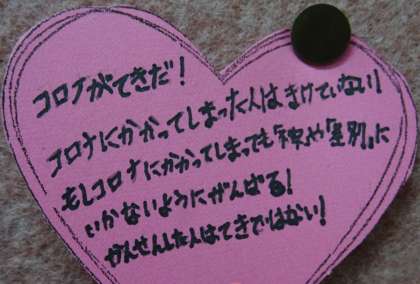 コロナがてきだ！
コロナにかかってしまった人はまけていない！
もしコロナにかかってしまっても「や「差別」に
いかないようにがんばる！
かんせんした人はてきではない！